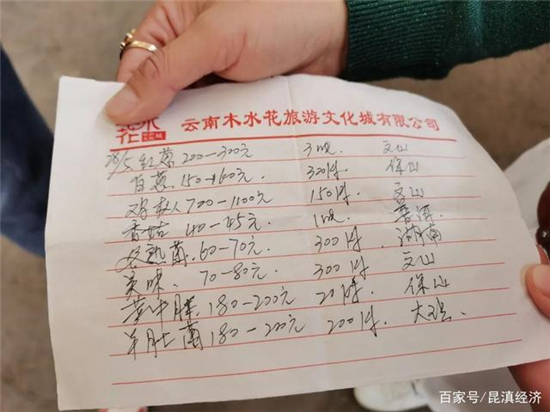 木水花
云南木水花旅游文化城有限公司
26/5 红葱 200-300元 3吨 文山
白葱 150-160元 300件 保山
鸡枞 700-1100元 150件 文山
香菇 40-45元 1吨 普洱
双熟菌 60-70元 300件 湖南
美味 70-80元 300件 文山
黄牛肝 180-200元 20件 保山
羊肚菌 180-200元 200件 大理
百家号/昆滇经济